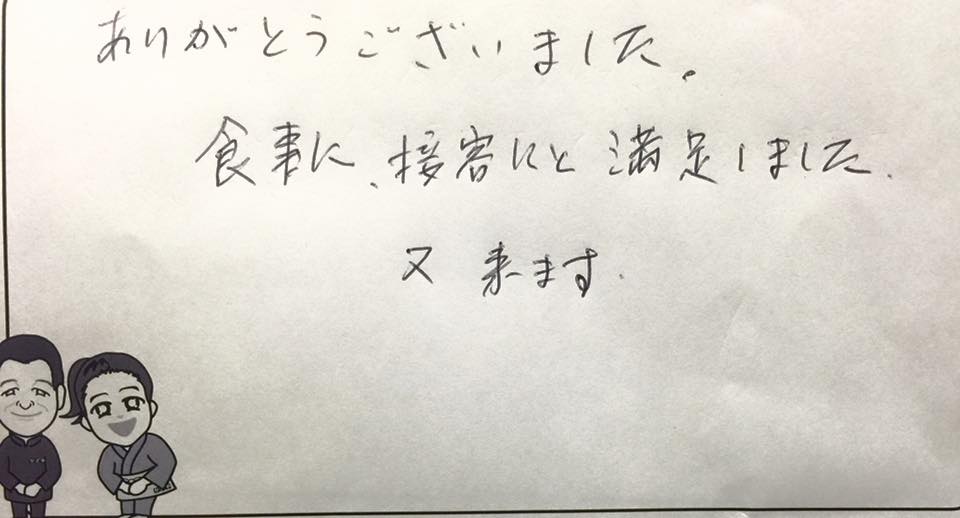 ありがとうございました。
食事に、接客にと満足しました.
又 来ます.